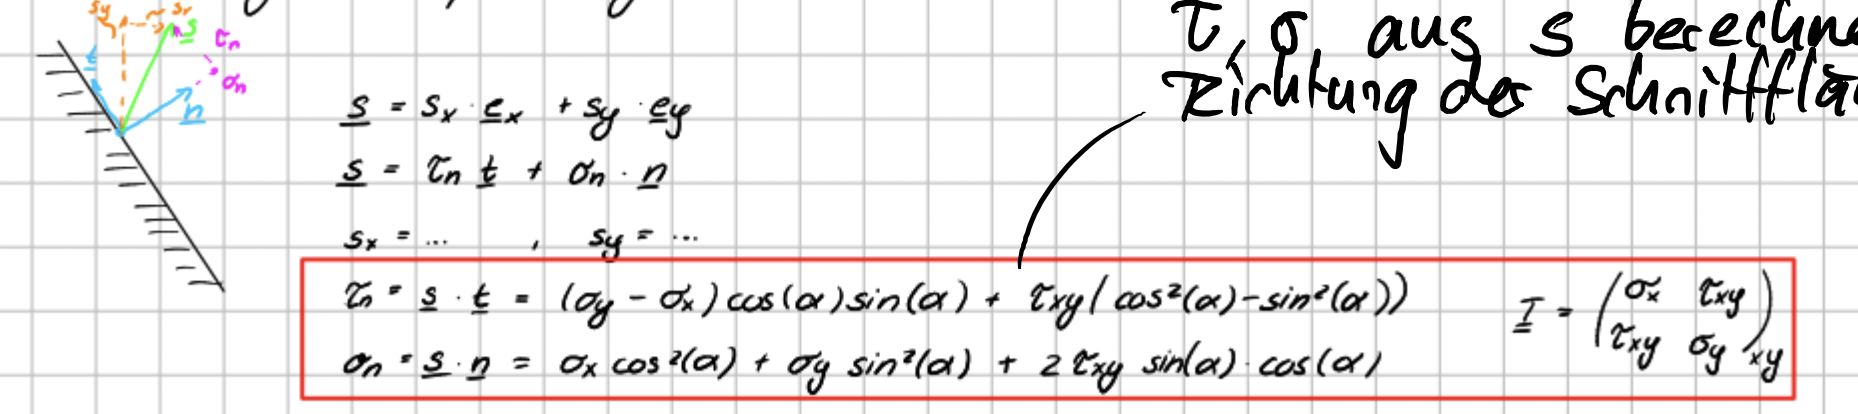 sy sx
s
t τn
σn
n
τ, σ aus s
Richtung der
s = sx · ex + sy · ey
s = τn t + σn · n
sx = ... , sy = ...
τn = s · t = (σy - σx) cos(α) sin(α) + τxy (cos²(α) - sin²(α))
σn = s · n = σx cos²(α) + σy sin²(α) + 2 τxy sin(α) · cos(α)
I = (σx τxy
τxy σy)xy